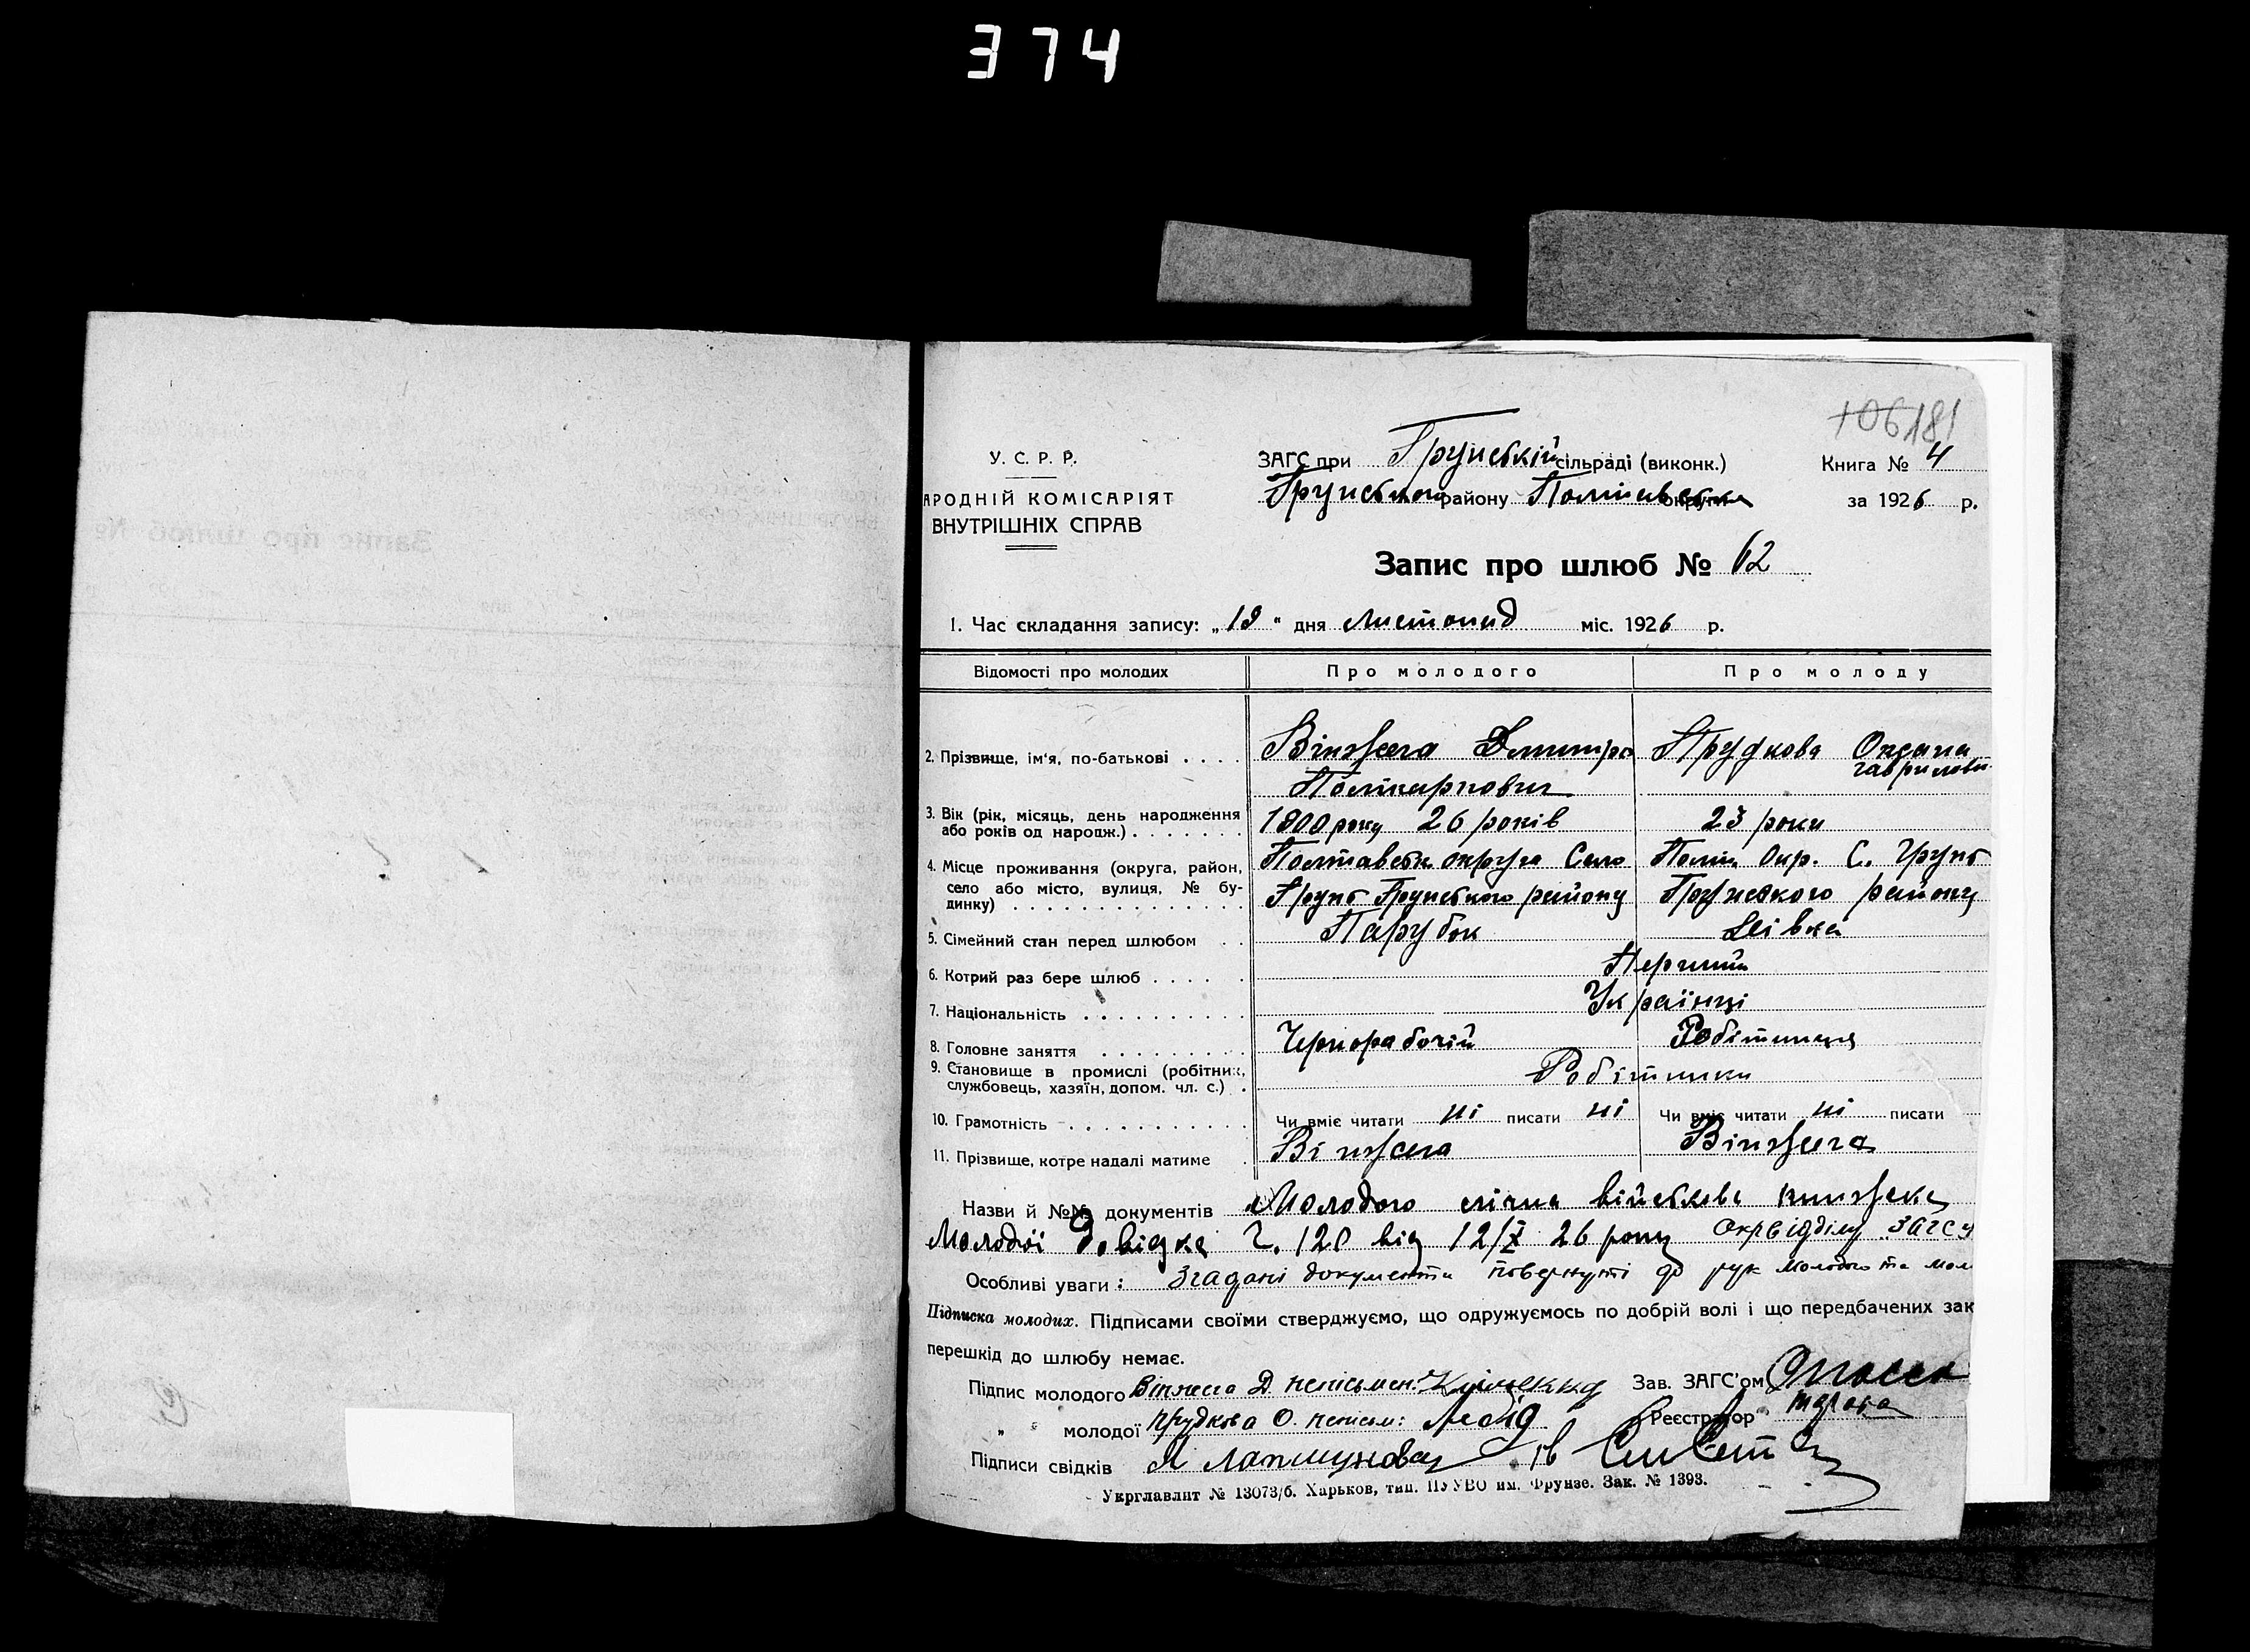 374
106 181
У. С. Р. Р.
АРОДНІЙ КОМІСАРІЯТ
ВНУТРІШНІХ СПРАВ
ЗАГС при Грунській сільраді (виконк.)
Грунського району Полтавська округи
Книга № 4
за 1926 р.
Запис про шлюб № 62
1. Час складання запису: „19" дня Листопад міс. 1926 р.
Відомості про молодих Про молодого Про молоду
2. Прізвище, ім'я, по-батькові . . . . Дмитро Прудкова Оксана
Полікарпович Гаврилові
3. Вік (рік, місяць, день народження
або років од народж.) . . . . . . . 1900 року 26 років 23 роки
4. Місце проживання (округа, район,
село або місто, вулиця, № бу-
динку) . . . . . . . . . . . . . .
Полтавськ округа Село
Грунь Грунського району
Полт. Окр. С. Грунь
Грунського району
5. Сімейний стан перед шлюбом . . Парубок Дівка
6. Котрий раз бере шлюб . . . . . Перший
7. Національність . . . . . . . . . . Українці
8. Головне заняття . . . . . . . . . Чернорабочій Робітниця
9. Становище в промислі (робітник,
службовець, хазяїн, допом. чл. с.) . Робітники
10. Грамотність . . . . . . . . . . . Чи вміє читати ні писати ні Чи вміє читати ні писати
11. Прізвище, котре надалі матиме .
Назви й №№ документів Молодого лічна військова книжека
Молодої довідка Ч. 120 від 12/X 26 року Окрвідділу ЗАГСу
Особливі уваги: Згадані документи повернуті до рук молодого та мол
Підписка молодих. Підписами своїми стверджуємо, що одружуємось по добрій волі і що передбачених зак
перешкід до шлюбу немає.
Підпис молодого Д. неписьмен: Зав. ЗАГС'ом
„ „ молодої Прудкова О. неписьм: Лебід Реєстратор
Підписи свідків
Укрглавлит № 13073/б. Харьков, тип. ПУУВО им. Фрунзе. Зак. № 1393.